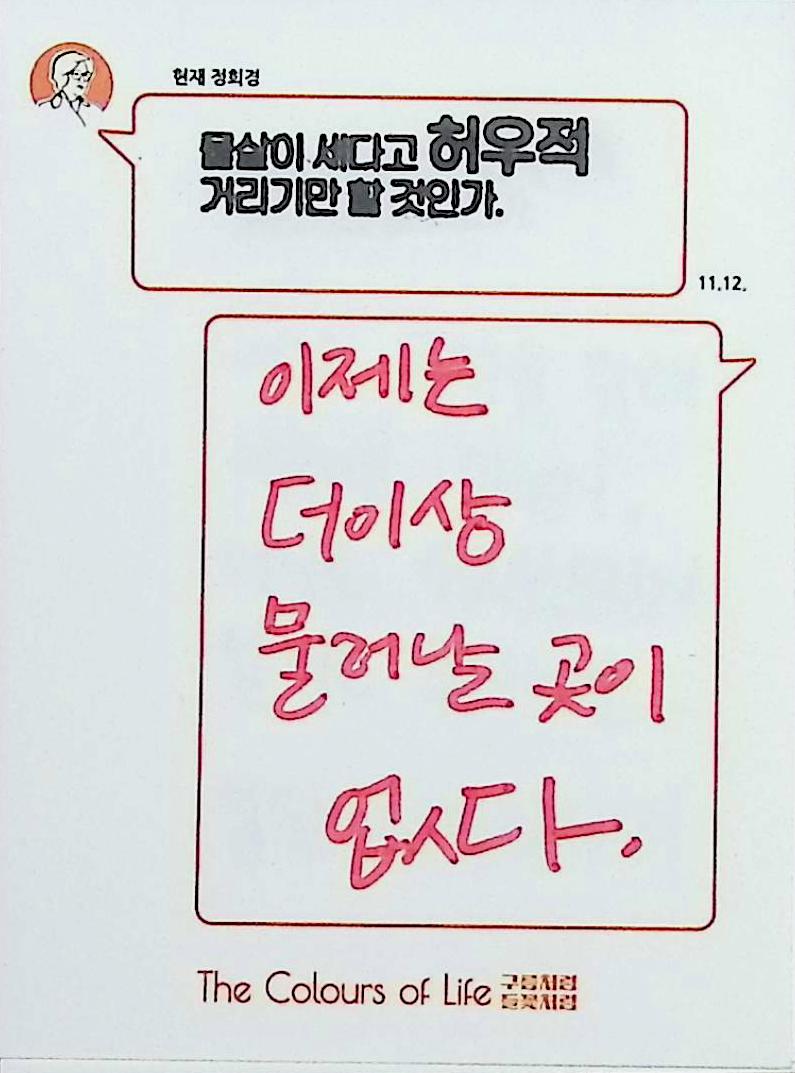 현재 정희경
물살이 세다고 허우적
거리기만 할 것인가.
11.12.
이제는
더이상
물러날 곳이
없다.
The Colours of Life 구름처럼
들꽃처럼